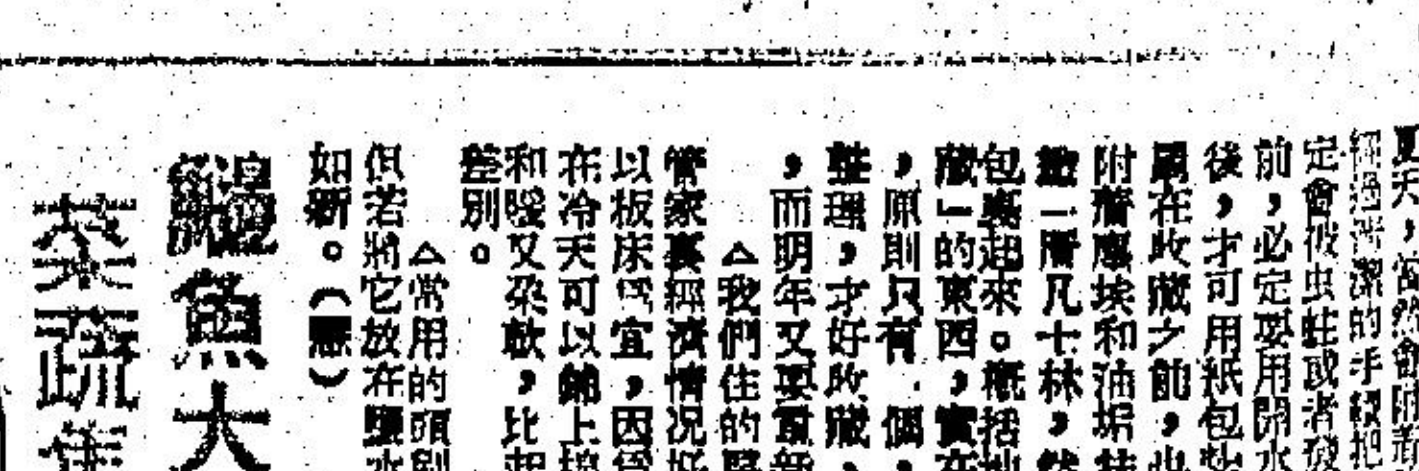 夏天，當然會附着
經過清潔的手續把
定會被虫蛀或者發
前，必定要用開水
後，才可用紙包
在收藏之前，
附着塵埃和油垢
一層凡士林，然
包裹起來。概括
藏」的東西，實在
，原則只有 個，
整理，才好收藏，
，而明年又要重新
△我們住的
管家裏經濟情况好
以板床爲宜，因爲
在冷天可以鋪上
和暖又柔軟，比起
差別。
△常用的頭
但若將它放在鹽水
如新。（慧）
鯿魚大
菜蔬佳